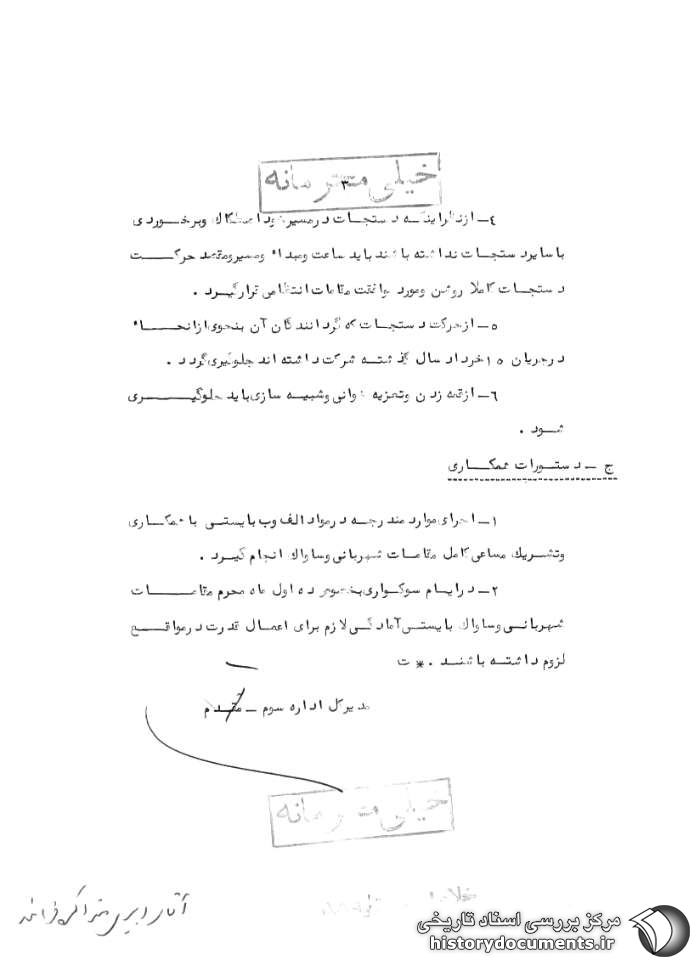 خیلی محرمانه
۳
٤ـ ازنظراینکه دستجات درمسیرخود اصطکاك وبرخوردی
باسایردستجات نداشته باشند باید ساعت ومبداء ومسیرومقصد حرکت
دستجات کاملا روشن ومورد موافقت مقامات انتظامی قرارگیرد .
۵ـ ازحرکت دستجات که گردانندگان آن بنحوی ازانحاء
درجریان ۱۵خرداد سال گذشته شرکت داشته اند جلوگیری گردد .
٦ـ ازقمه زدن وتعزیه خوانی وشبیه سازی باید جلوگیری
شود .
ج ـ دستورات همکاری
۱ـ اجرای موارد مندرجه درمواد الف وب بایستی با همکاری
وتشریك مساعی کامل مقامات شهربانی وساواك انجام گیرد .
۲ـ درایام سوکواری بخصوص ده اول ماه محرم مقامات
شهربانی وساواك بایستی آمادگی لازم برای اعمال قدرت درمواقع
لزوم داشته باشند .* ت
مدیرکل اداره سوم ـ مقدم
خیلی محرمانه
مرکز بررسی اسناد تاریخی
historydocuments.ir